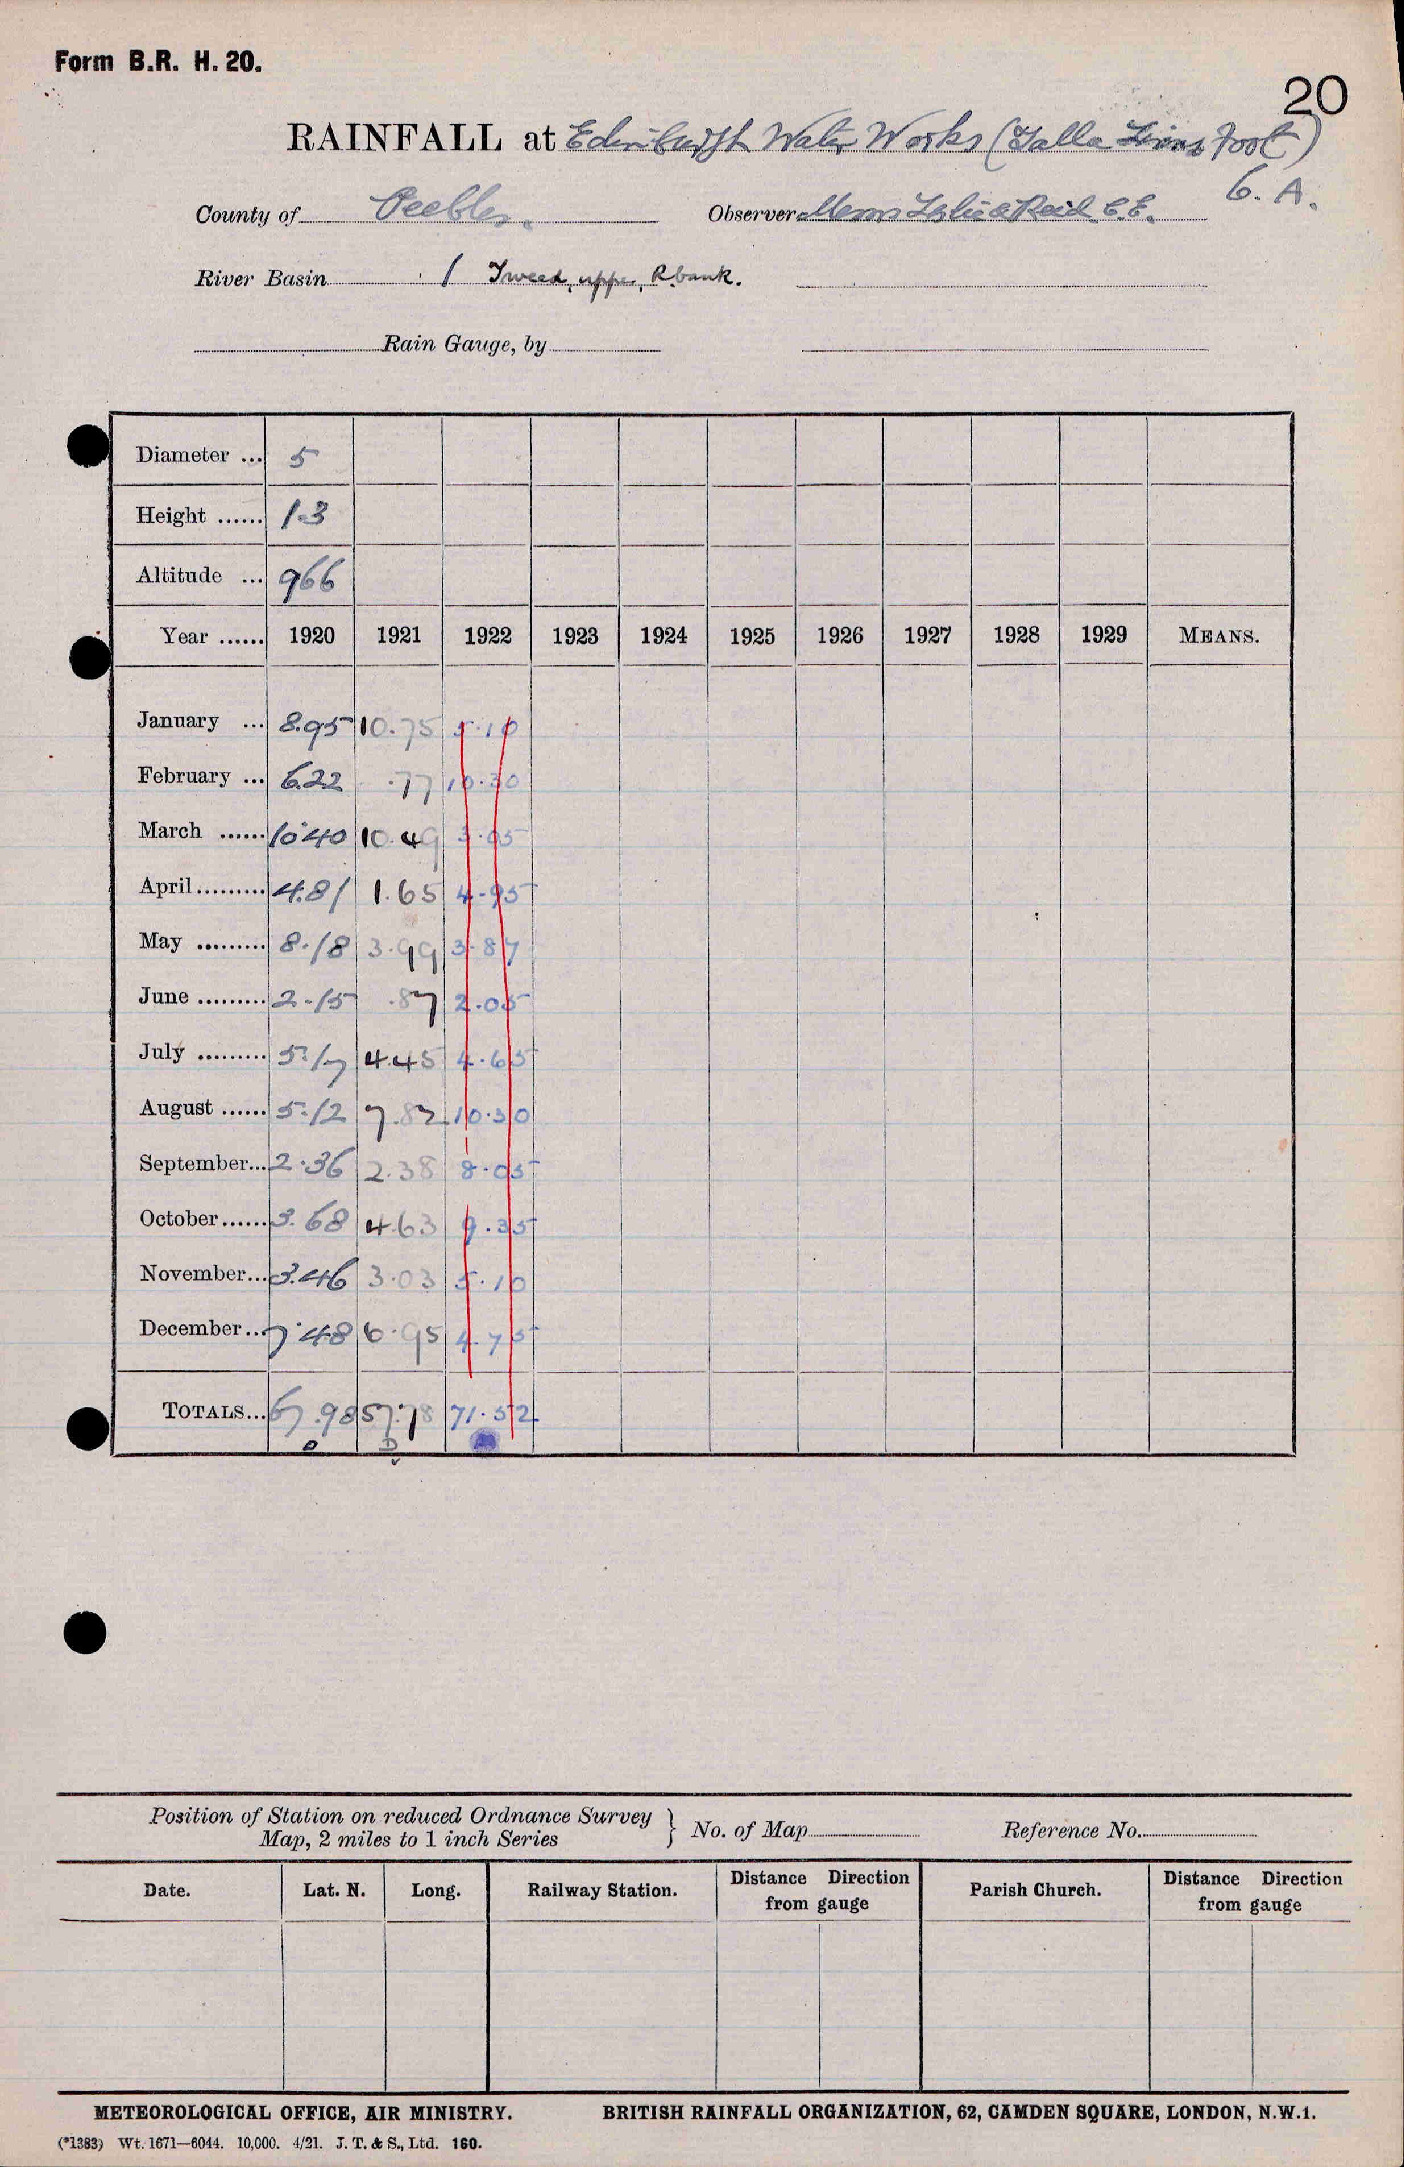 Form B.R. H. 20.
20
RAINFALL at Edinburgh Water Works (Talla Linns Foot)
6. A.
County of Peebles. Observer Messrs Leslie & Reid C.E.
River Basin / Tweed, upper, R. bank.
Rain Gauge, by
Diameter ... 5
Height ...... 1.3
Altitude ... 966
Year ...... 1920 1921 1922 1923 1924 1925 1926 1927 1928 1929 MEANS.
January ... 8.95 10.75 5.10
February ... 6.22 .77 10.30
March ...... 10.40 10.49 3.05
April ......... 4.81 1.65 4.95
May ......... 8.18 3.99 3.87
June ......... 2.15 .87 2.05
July ......... 5.17 4.45 4.65
August ...... 5.12 7.82 10.30
September... 2.36 2.38 8.05
October...... 3.68 4.63 9.35
November... 3.46 3.03 5.10
December... 7.48 6.95 4.75
TOTALS... 67.98 57.78 71.52
D D
Position of Station on reduced Ordnance Survey
Map, 2 miles to 1 inch Series } No. of Map Reference No.
Date. Lat. N. Long. Railway Station. Distance from gauge Direction Parish Church. Distance from gauge Direction
METEOROLOGICAL OFFICE, AIR MINISTRY. BRITISH RAINFALL ORGANIZATION, 62, CAMDEN SQUARE, LONDON, N.W.1.
(*1383) Wt. 1671—6044. 10,000. 4/21. J. T. & S., Ltd. 160.